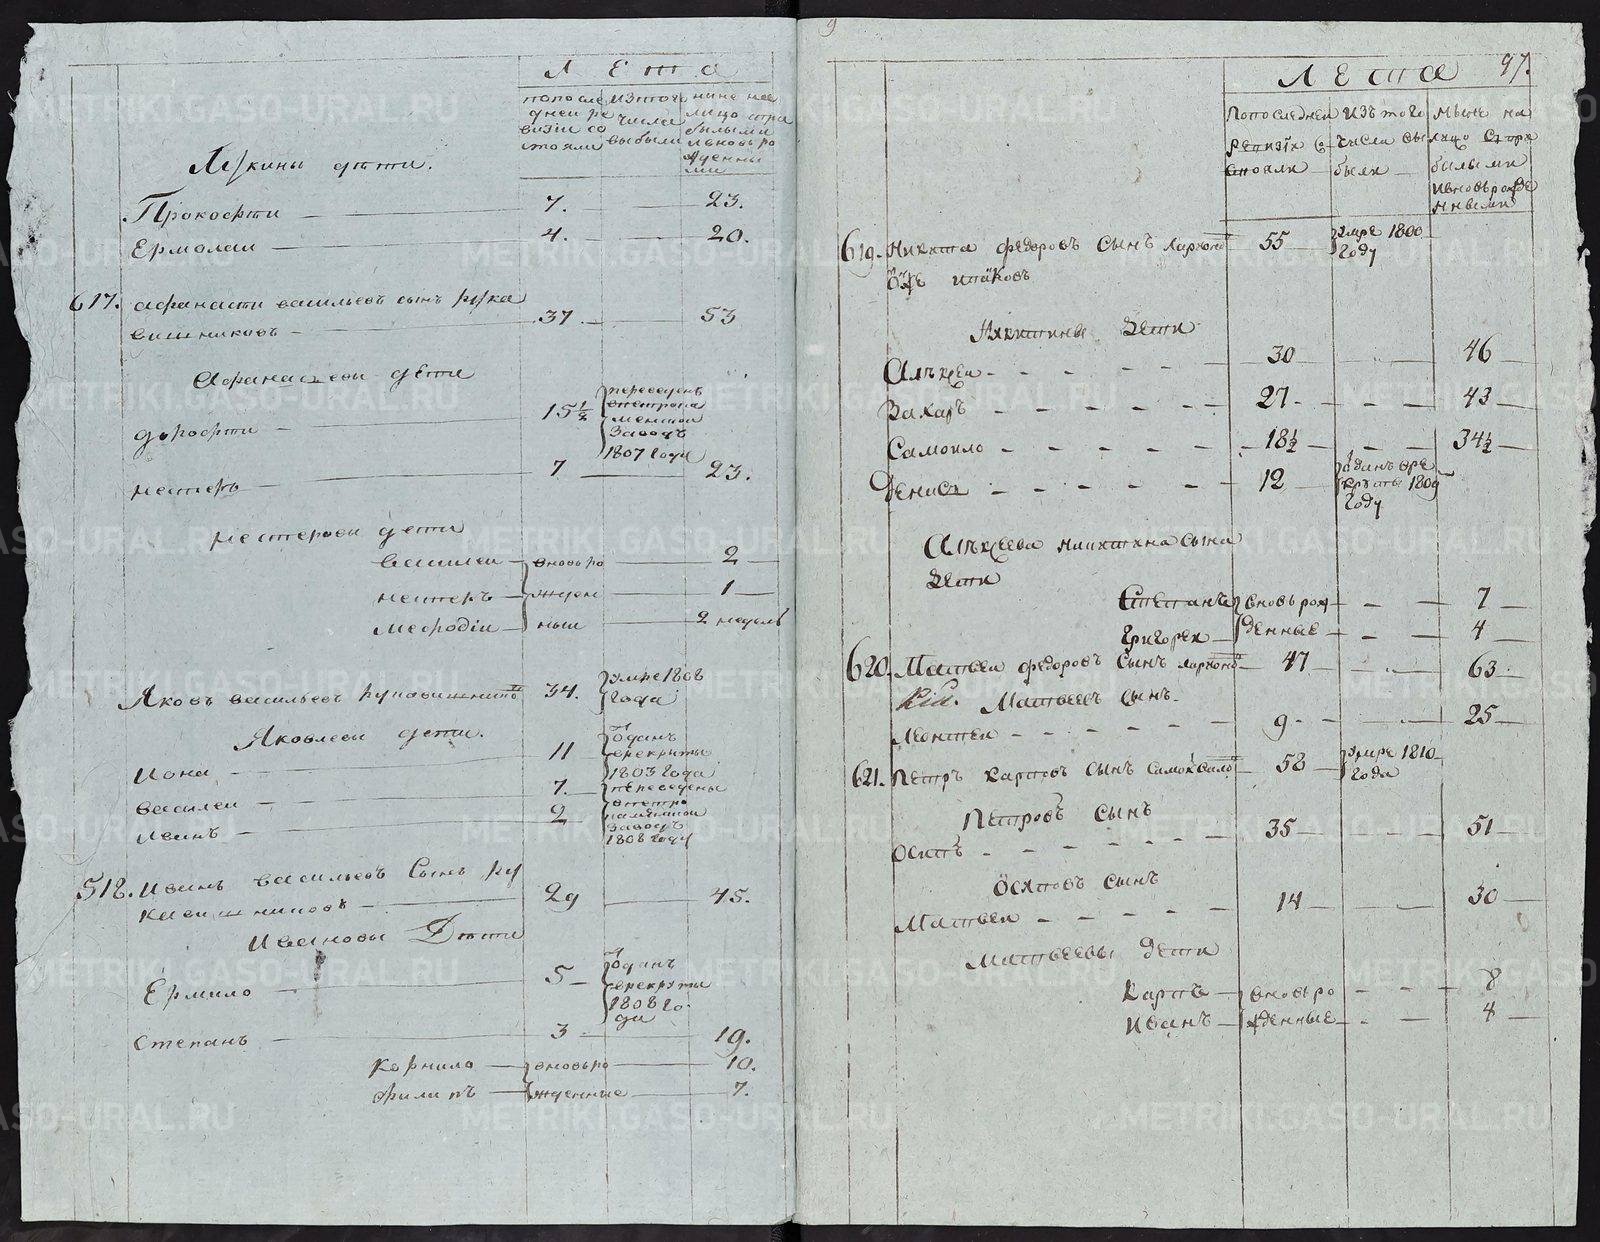 Лета
попосле
дней ре
визiи со
стояли
изтого
числа
выбыли
ныне на
лицо стри
былыми
ивновь ро
жденны
ми
Лукины дети.
Прокофти — 7. — 23.
Ермолаи — 4. — 20.
617. афанасти васильевъ сынъ рука
вишниковъ — 37 — 53
Афанасьевы дети
дорофти — 15½
переведенъ
Заводъ
1807 года
нестеръ — 7 — 23.
нестеровы дети
василеи — вновьро — 2
нестеръ — жден — 1
мефодiи — ныи — 2 неделъ
Яковъ васильевъ рукавишнико — 34.
умре 1808
года
Яковлевы дети.
Иона — 11
Оданъ
врекруты
1803 года
василеи — 7.
иванъ — 2
переведены
заводъ
1808 году
518. Иванъ васильевъ Сынъ ру
кавишниковъ — 29 — 45.
Ивановы Дети
Ермило — 5
Оданъ
врекруты
1808 го
да
Степанъ — 3 — 19.
Корнило — вновьро — 10.
Филипъ — жденные — 7.
9
97.
Лета
Попоследнеи
Ревизiи с
стояли
Изътого
числа вы
были
Ныне на
лицо стри
былыми
ивновьрожде
нными
619. Никита федоровъ сынъ ларионо — 55
умре 1800
Году
Никитины Дети
Алъксеи — 30 — 46
Захаръ — 27 — 43
Самоило — 18½ — 34½
Денисъ — 12
Оданъ вре
круты 1809
Году
Алъксеева никитина сына
Дети
Степанъ — вновьрож — 7
Григореи — денные — 4
620. Матвеи федоровъ Сынъ ларионо — 47 — 63
Матвеевъ Сынъ
Леонтеи — 9 — 25
621. Петръ карповъ Сынъ Самохвало — 58
умре 1810
Года
Петровъ Сынъ
Осипъ — 35 — 51
Осиповъ Сынъ
Матвеи — 14 — 30
Матвеевы Дети
Карпъ — вновьро — 8
Иванъ — жденные — 4
METRIKI.GASO-URAL.RU